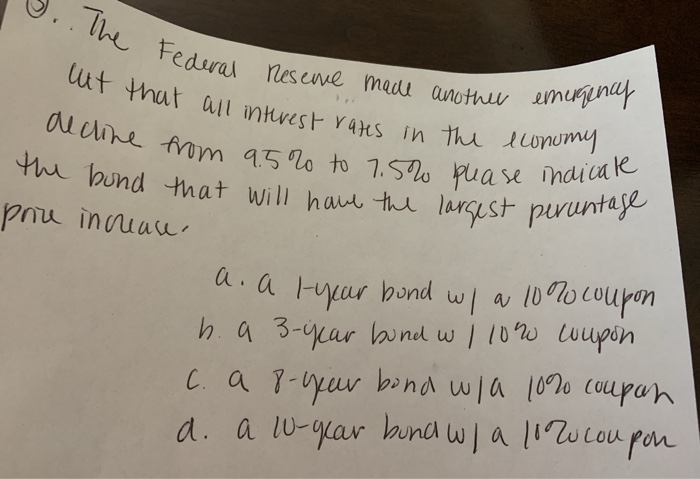 The Federal Reserve made another emergency
cut that all interest rates in the economy
decline from 9.5% to 7.5% please indicate
the bond that will have the largest percentage
price increase.
a. a 1-year bond w/ a 10% coupon
b. a 3-year bond w/ 10% coupon
c. a 8-year bond w/a 10% coupon
d. a 10-year bond w/ a 10% coupon